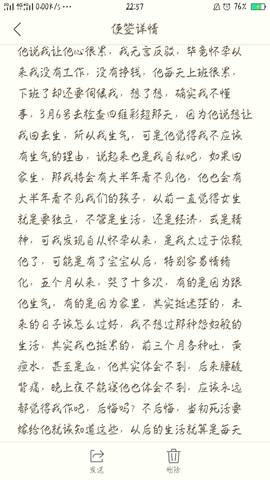 0.00K/s
76%
22:57
便签详情
他说我让他心很累，我无言反驳，毕竟怀孕以
来我没有工作，没有挣钱，他每天上班很累，
下班了却还要伺候我，想了想，确实我不懂
事，3月6号去检查四维彩超那天，因为他说想让
我回去生，所以我生气，可是他觉得我不应该
有生气的理由，说起来也是我自私吧，如果回
家生，那我将会有大半年看不见他，他也会有
大半年看不见我们的孩子，从前一直觉得女生
就是要独立，不管是生活，还是经济，或是精
神，可我发现自从怀孕以来，是我太过于依赖
他了，可能是有了宝宝从后，特别容易情绪
化，五个月从来，哭了十多次，有的是因为跟
他生气，有的是因为家里，其实挺迷茫的，未
来的日子该怎么过好，我不想过那种怨妇般的
生活，其实我也挺累的，前三个月各种吐，黄
疸水，甚至是血，他其实体会不到，后来腰破
背痛，晚上夜不能寝他也体会不到，应该永远
都觉得我作吧，后悔吗？不后悔，当初死活要
嫁给他就该知道这些，从后的生活就算是每天
发送
删除